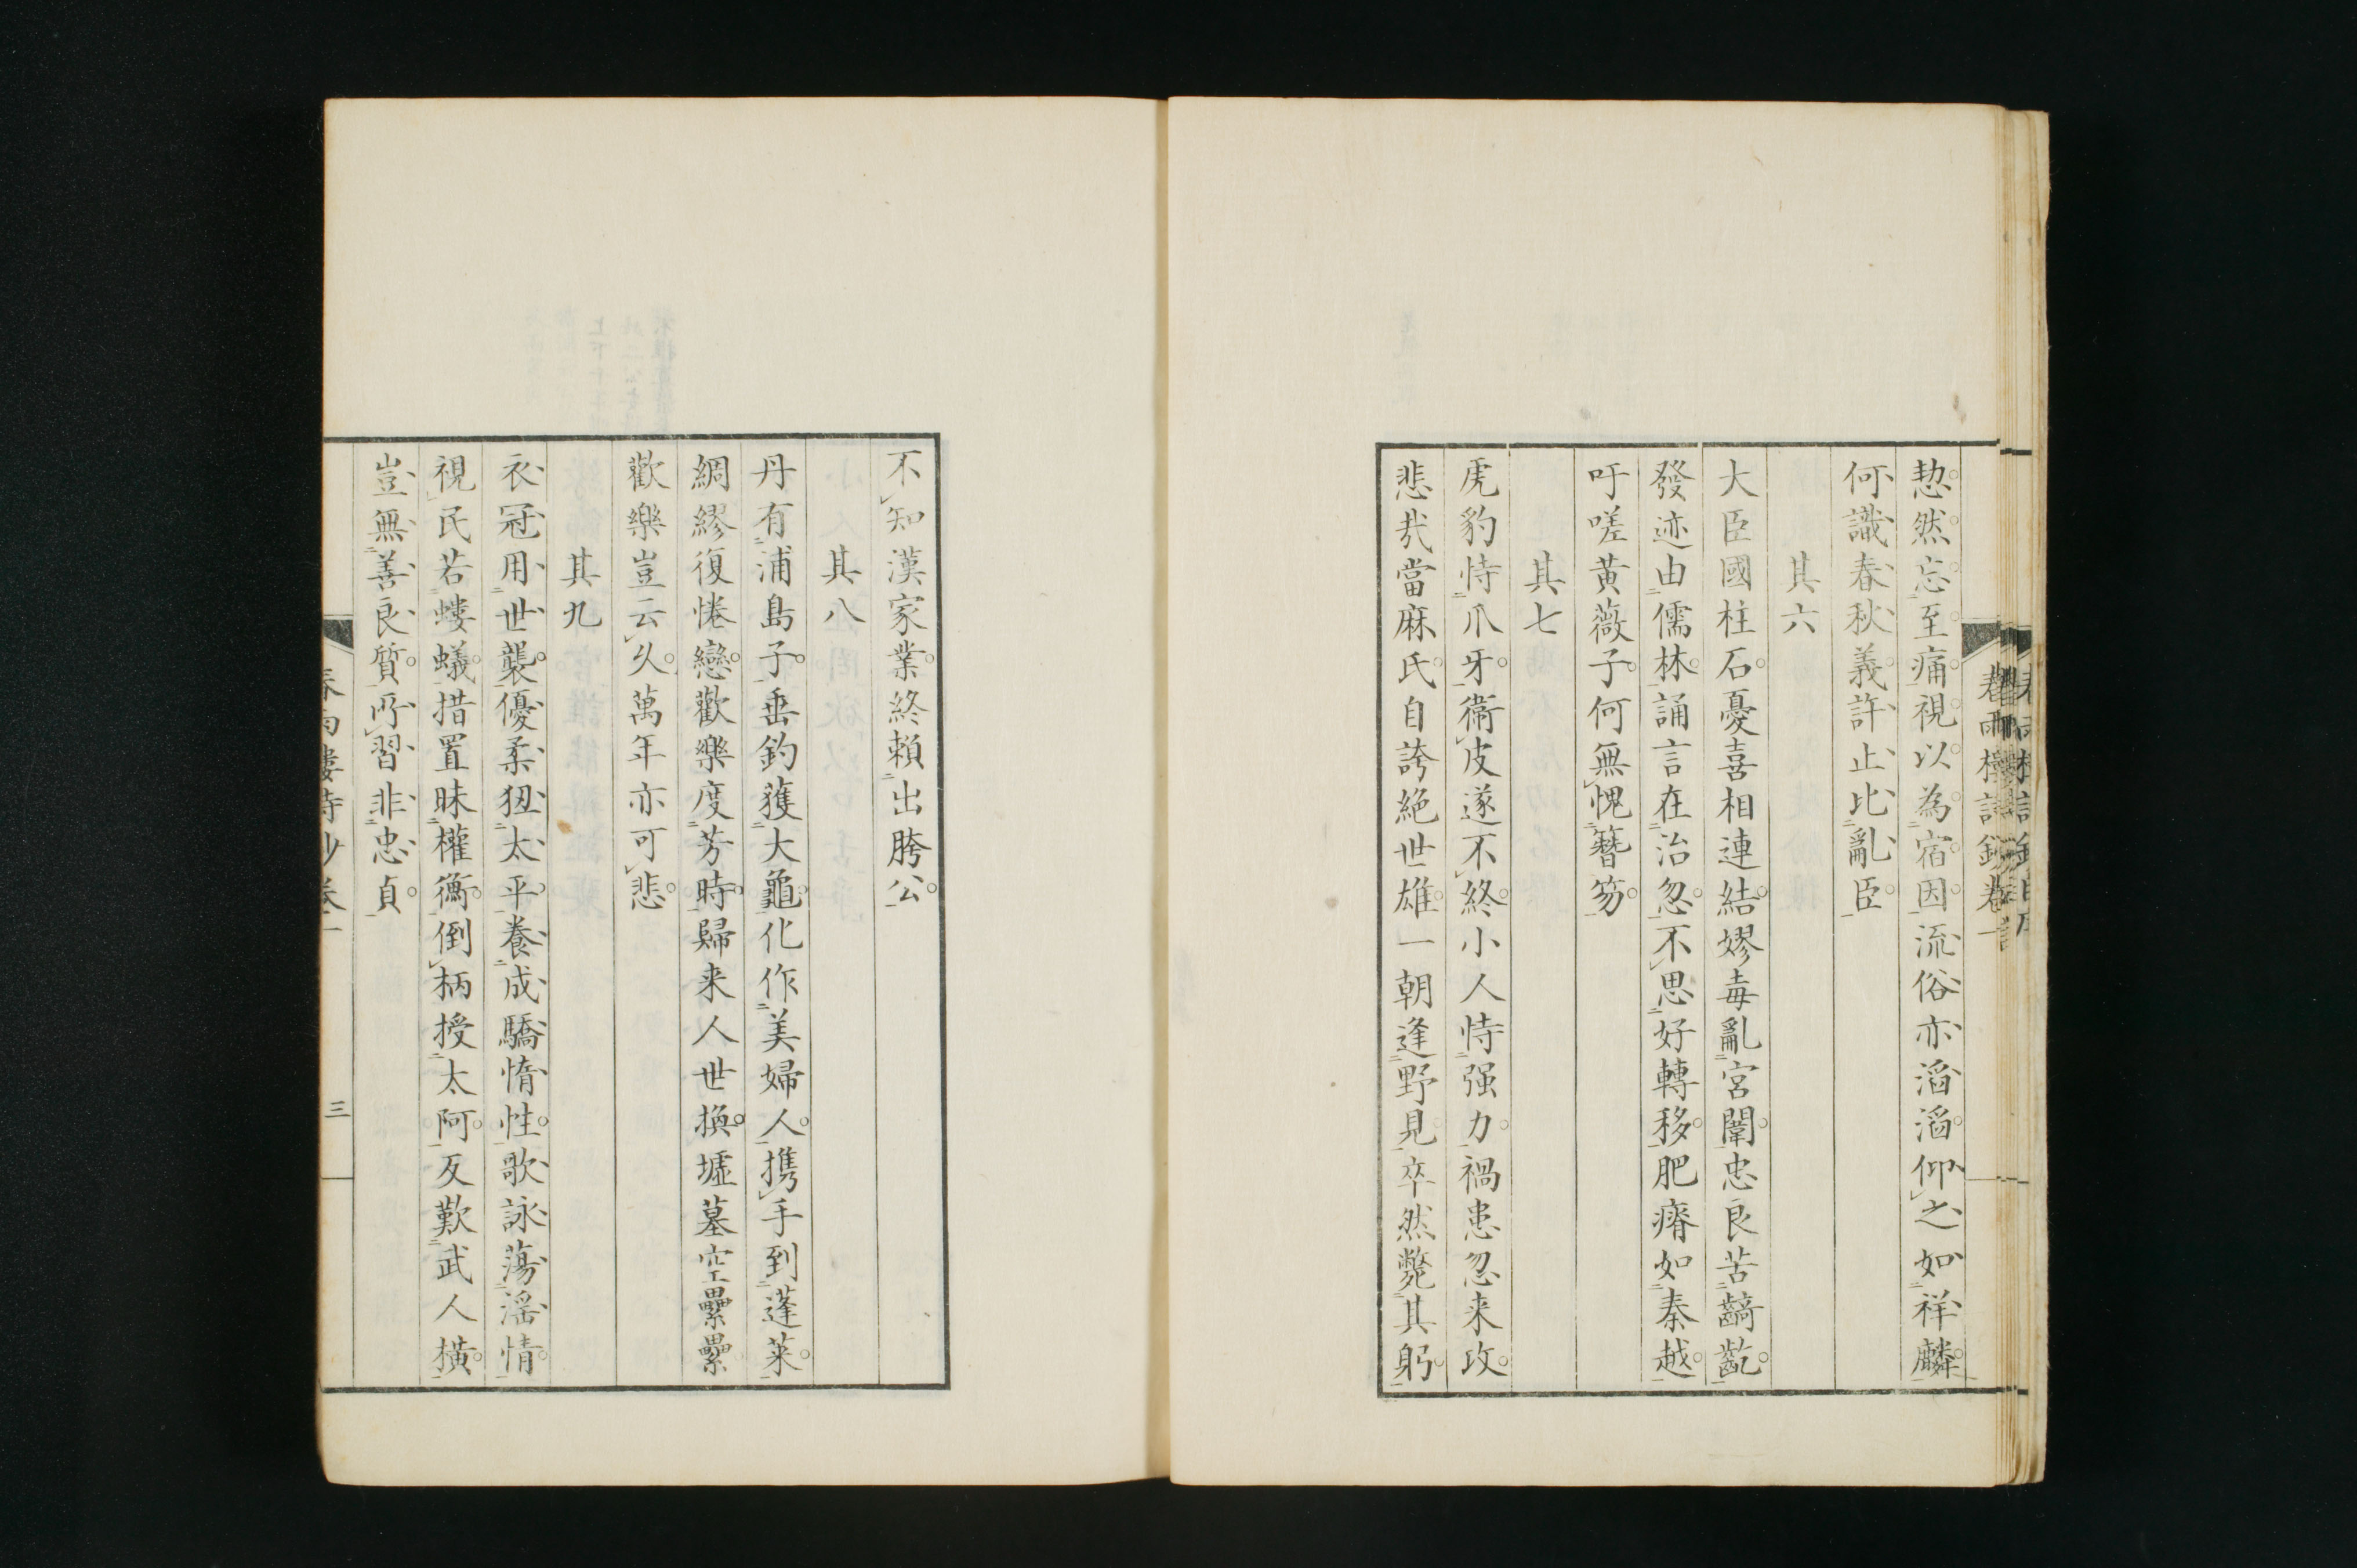 恝然忘至痛視以為宿因流俗亦滔滔仰之如祥麟
何識春秋義許止比亂臣
其六
大臣國柱石憂喜相連結嫪毒亂宮闈忠良苦齮齕
發迹由儒林誦言在治忽不思好轉移肥瘠如秦越
吁嗟黃薇子何無愧簪笏
其七
虎豹恃爪牙衛皮遂不終小人恃强力禍患忽来攻
悲㢤當麻氏自誇絶世雄一朝逢野見卒然斃其躬
不知漢家業終賴出胯公
其八
丹有浦島子垂釣獲大龜化作美婦人携手到蓬莱
綢繆復惓戀歡樂度芳時歸来人世換墟墓空纍纍
歡樂豈云久萬年亦可悲
其九
衣冠用世襲優柔狃太平養成驕惰性歌詠蕩淫情
視民若螻蟻措置昧權衡倒柄授太阿反歎武人橫
豈無善良質所習非忠貞
春雨樓詩鈔卷一
三